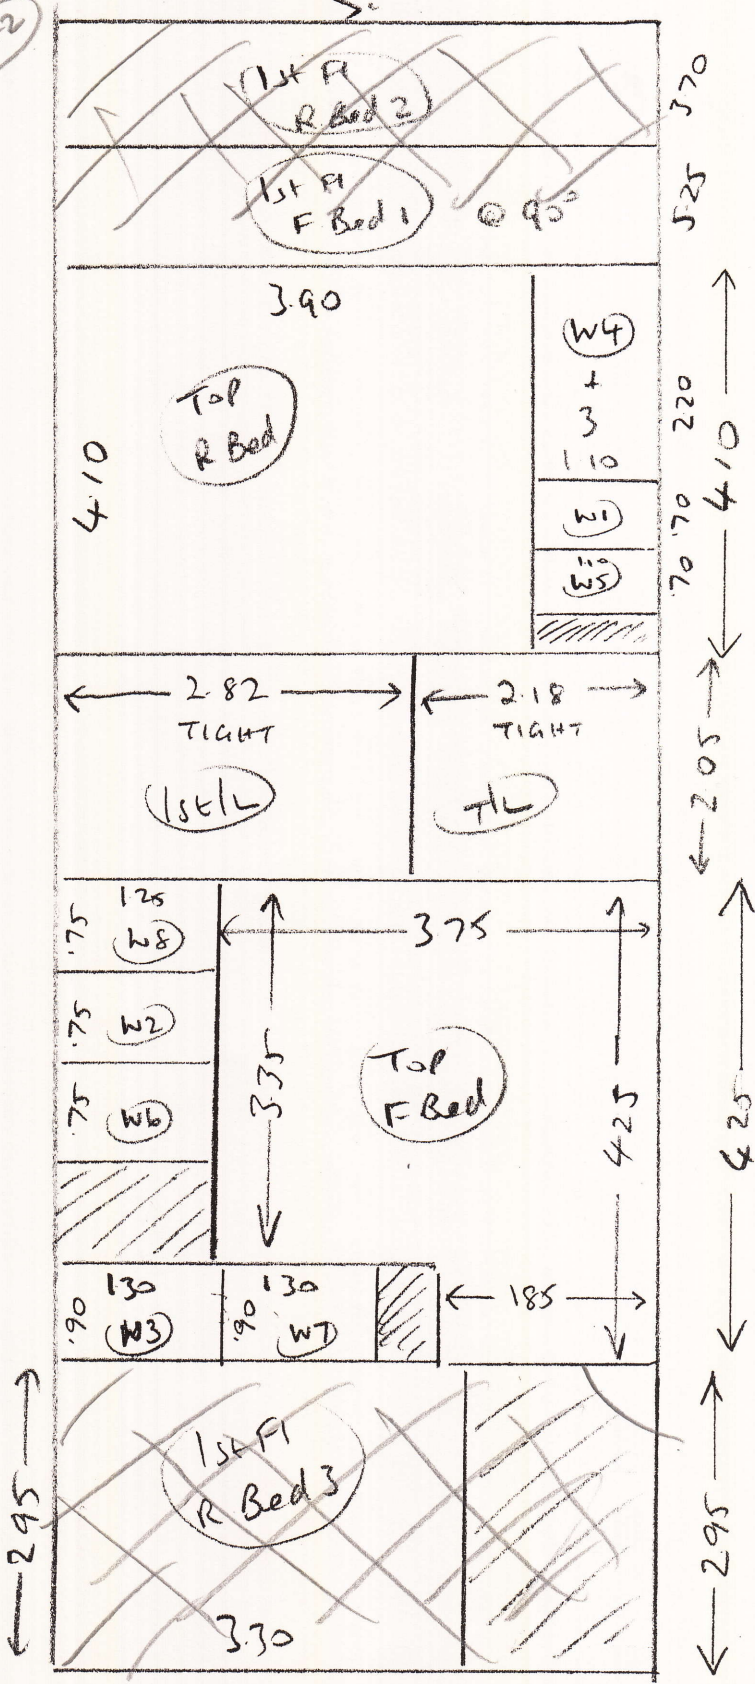 1st Fl
R Bed 2
370
1st Fl
F Bed 1 @ 90°
5.25
3.90
Top
R Bed
4.10
W4
+
3
1.10
220
W1
.70
W5
.70
410
2.82
TIGHT
1st/L
2.18
TIGHT
T/L
205
1.25
.75 W8
.75 W2
.75 W6
335
375
Top
F Bed
425
425
130
.90 W3
130
.90 W7
185
1st Fl
R Bed 3
295
3.30
295